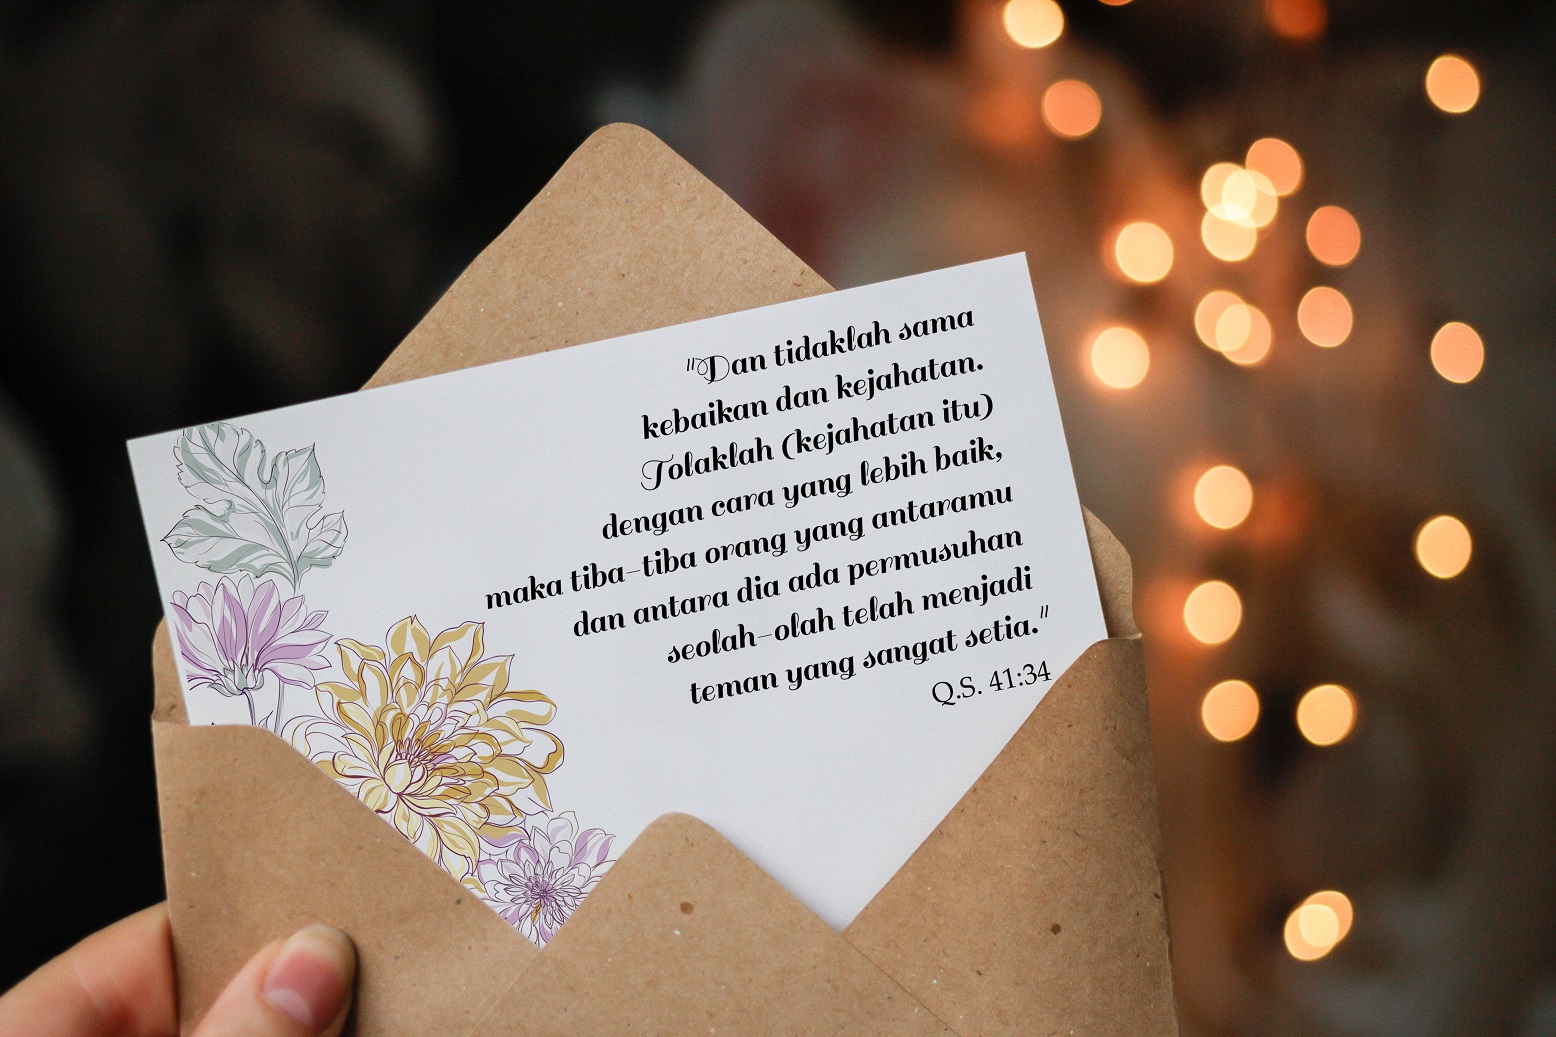 "Dan tidaklah sama
kebaikan dan kejahatan.
Tolaklah (kejahatan itu)
dengan cara yang lebih baik,
maka tiba-tiba orang yang antaramu
dan antara dia ada permusuhan
seolah-olah telah menjadi
teman yang sangat setia."
Q.S. 41:34